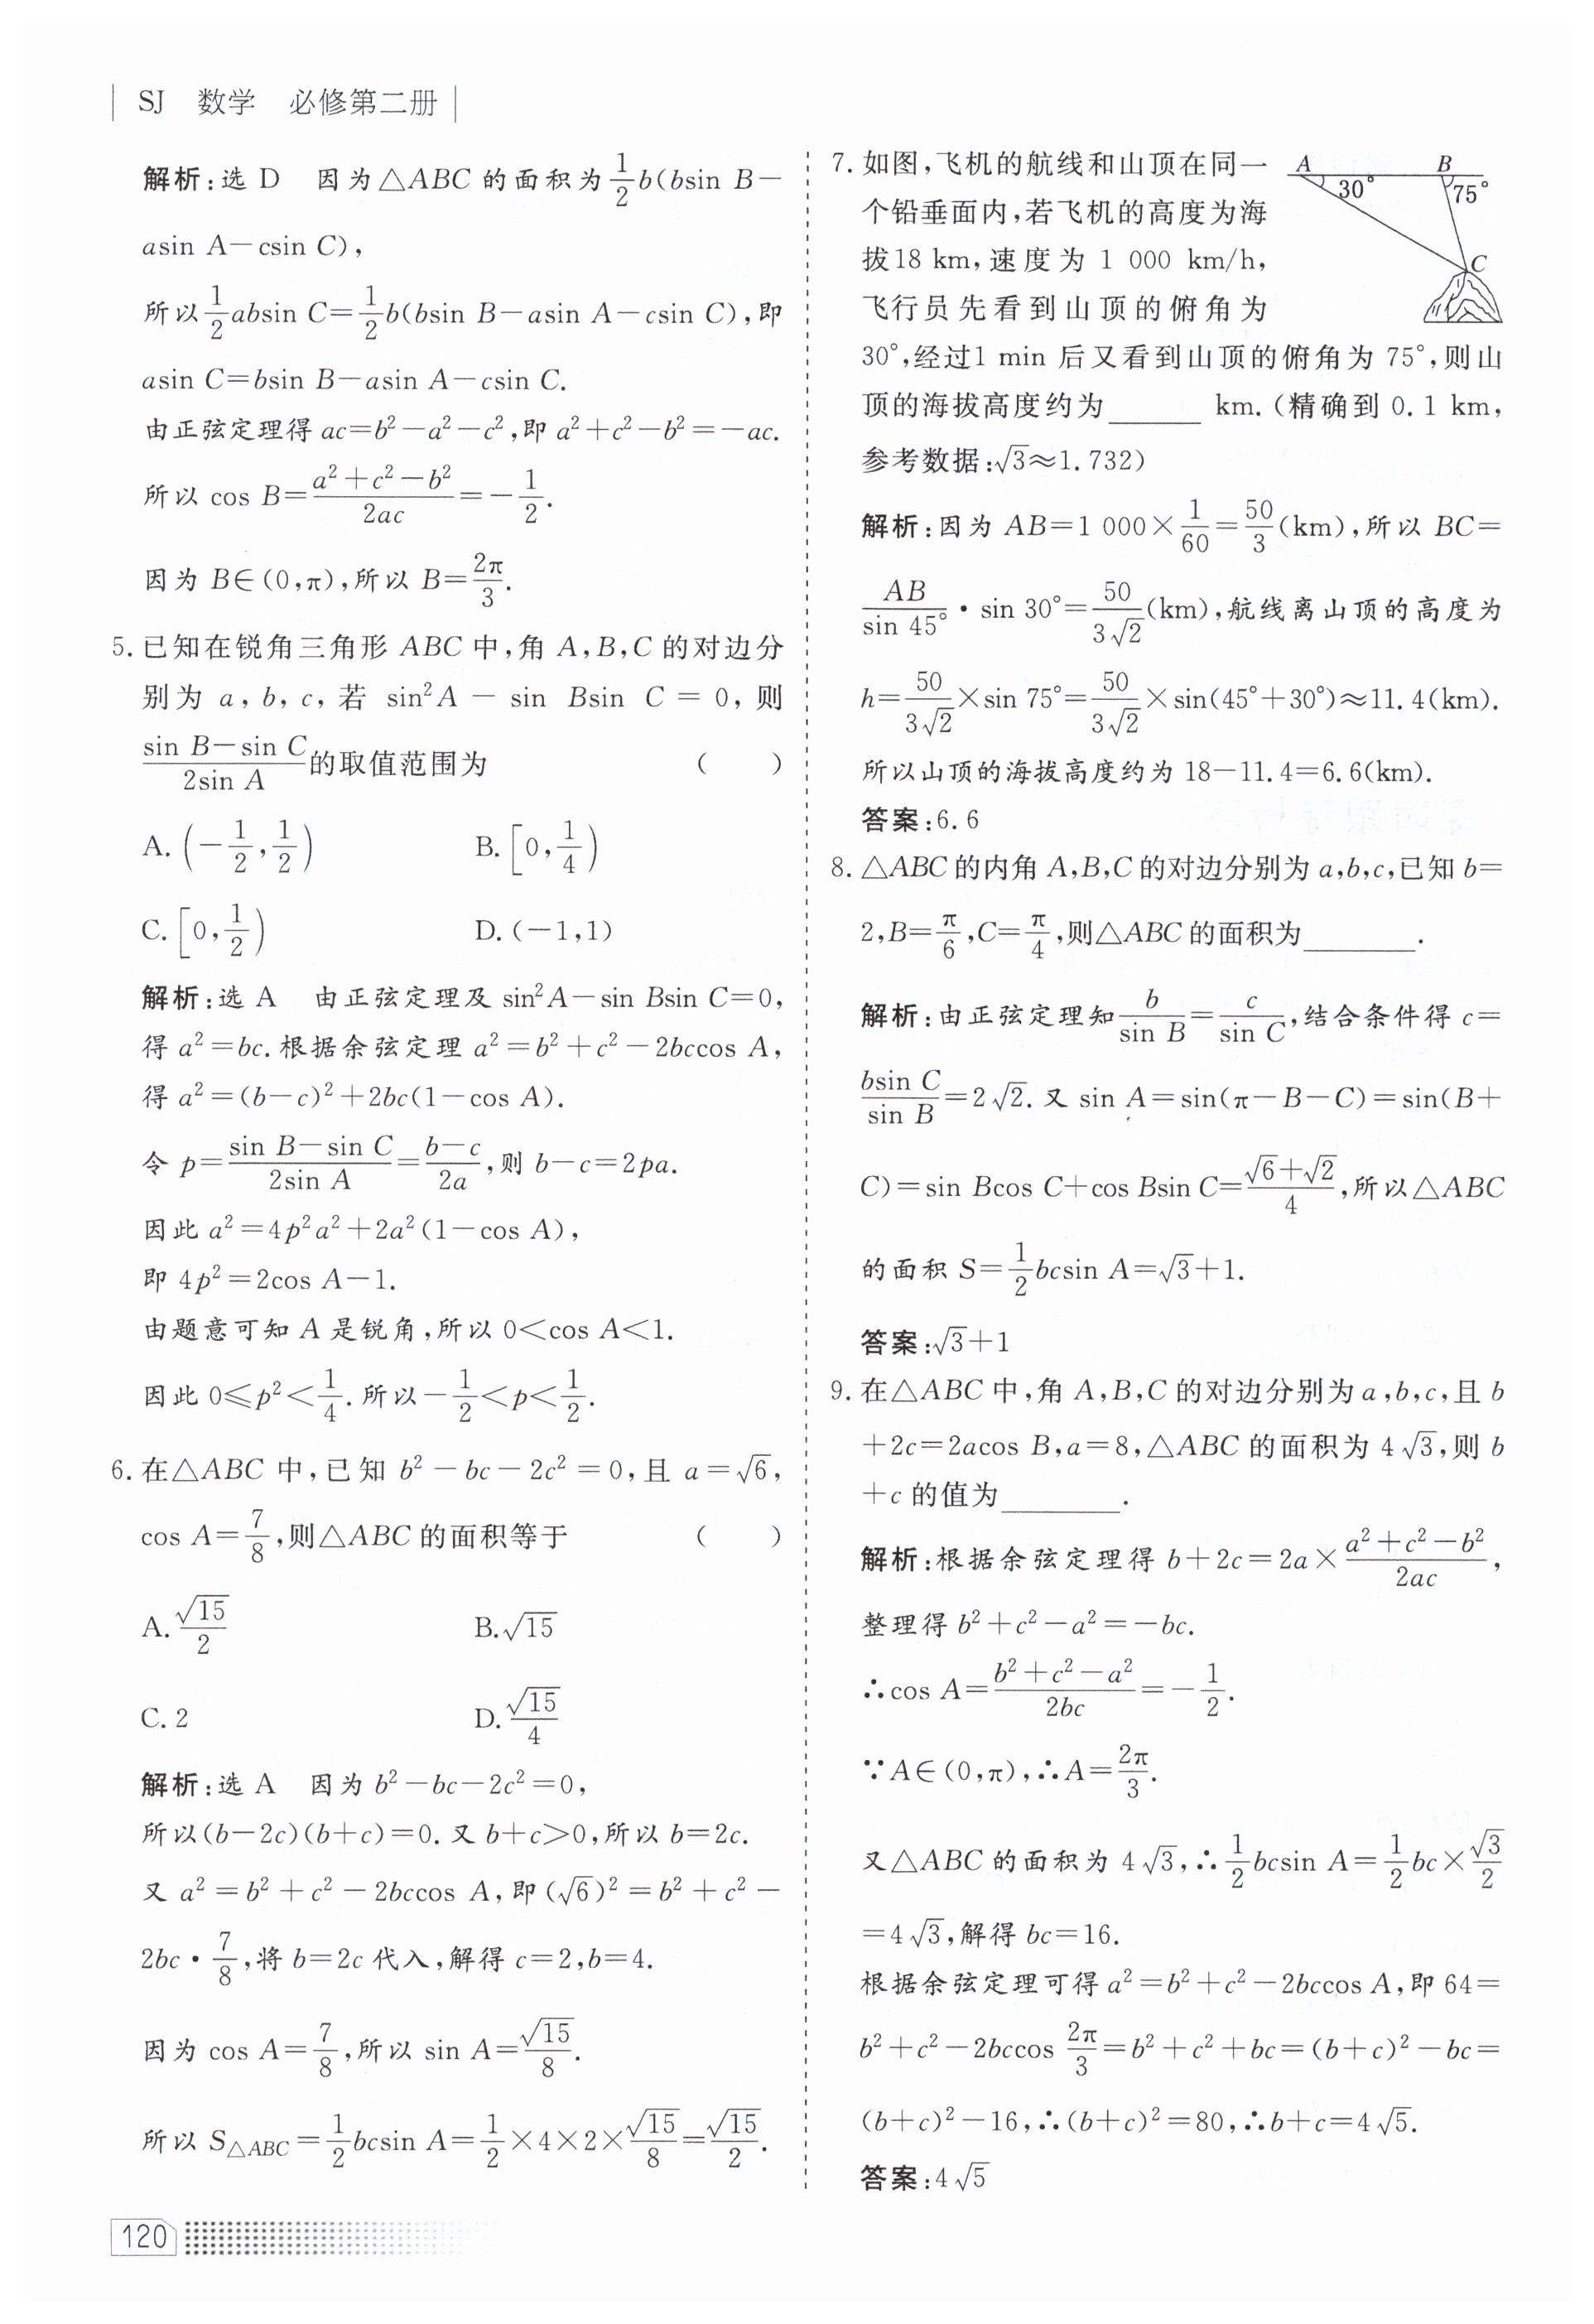 SJ 数学 必修第二册
解析:选 D 因为△ABC 的面积为 1/2 b(bsin B−
asin A−csin C),
所以 1/2 absin C=1/2 b(bsin B−asin A−csin C),即
asin C=bsin B−asin A−csin C.
由正弦定理得 ac=b²−a²−c²,即 a²+c²−b²=−ac.
所以 cos B=(a²+c²−b²)/(2ac)=−1/2.
因为 B∈(0,π),所以 B=2π/3.
5. 已知在锐角三角形 ABC 中,角 A,B,C 的对边分
别为 a, b, c, 若 sin²A − sin Bsin C = 0, 则
(sin B−sin C)/(2sin A) 的取值范围为 ( )
A. (−1/2,1/2) B. [0,1/4)
C. [0,1/2) D. (−1,1)
解析:选 A 由正弦定理及 sin²A−sin Bsin C=0,
得 a²=bc. 根据余弦定理 a²=b²+c²−2bccos A,
得 a²=(b−c)²+2bc(1−cos A).
令 p=(sin B−sin C)/(2sin A)=(b−c)/(2a),则 b−c=2pa.
因此 a²=4p²a²+2a²(1−cos A),
即 4p²=2cos A−1.
由题意可知 A 是锐角,所以 0<cos A<1.
因此 0≤p²<1/4. 所以−1/2<p<1/2.
6. 在△ABC 中,已知 b²−bc−2c²=0,且 a=√6,
cos A=7/8,则△ABC 的面积等于 ( )
A. √15/2 B. √15
C. 2 D. √15/4
解析:选 A 因为 b²−bc−2c²=0,
所以(b−2c)(b+c)=0. 又 b+c>0,所以 b=2c.
又 a²=b²+c²−2bccos A,即 (√6)²=b²+c²−
2bc·7/8,将 b=2c 代入,解得 c=2,b=4.
因为 cos A=7/8,所以 sin A=√15/8.
所以 S△ABC=1/2 bcsin A=1/2×4×2×√15/8=√15/2.
120
7. 如图,飞机的航线和山顶在同一
个铅垂面内,若飞机的高度为海
拔18 km,速度为 1 000 km/h,
飞行员先看到山顶的俯角为
30°,经过1 min 后又看到山顶的俯角为 75°,则山
顶的海拔高度约为______ km. (精确到 0.1 km,
参考数据:√3≈1.732)
A B
30° 75°
C
解析:因为 AB=1 000×1/60=50/3(km),所以 BC=
AB/sin 45°·sin 30°=50/(3√2)(km),航线离山顶的高度为
h=50/(3√2)×sin 75°=50/(3√2)×sin(45°+30°)≈11.4(km).
所以山顶的海拔高度约为 18−11.4=6.6(km).
答案:6.6
8. △ABC 的内角 A,B,C 的对边分别为 a,b,c,已知 b=
2,B=π/6,C=π/4,则△ABC 的面积为______.
解析:由正弦定理知 b/sin B=c/sin C,结合条件得 c=
bsin C/sin B=2√2. 又 sin A=sin(π−B−C)=sin(B+
C)=sin Bcos C+cos Bsin C=(√6+√2)/4,所以△ABC
的面积 S=1/2 bcsin A=√3+1.
答案:√3+1
9. 在△ABC 中,角 A,B,C 的对边分别为 a,b,c,且 b
+2c=2acos B,a=8,△ABC 的面积为 4√3,则 b
+c 的值为______.
解析:根据余弦定理得 b+2c=2a×(a²+c²−b²)/(2ac),
整理得 b²+c²−a²=−bc.
∴cos A=(b²+c²−a²)/(2bc)=−1/2.
∵A∈(0,π),∴A=2π/3.
又△ABC 的面积为 4√3,∴1/2 bcsin A=1/2 bc×√3/2
=4√3,解得 bc=16.
根据余弦定理可得 a²=b²+c²−2bccos A,即 64=
b²+c²−2bccos 2π/3=b²+c²+bc=(b+c)²−bc=
(b+c)²−16,∴(b+c)²=80,∴b+c=4√5.
答案:4√5